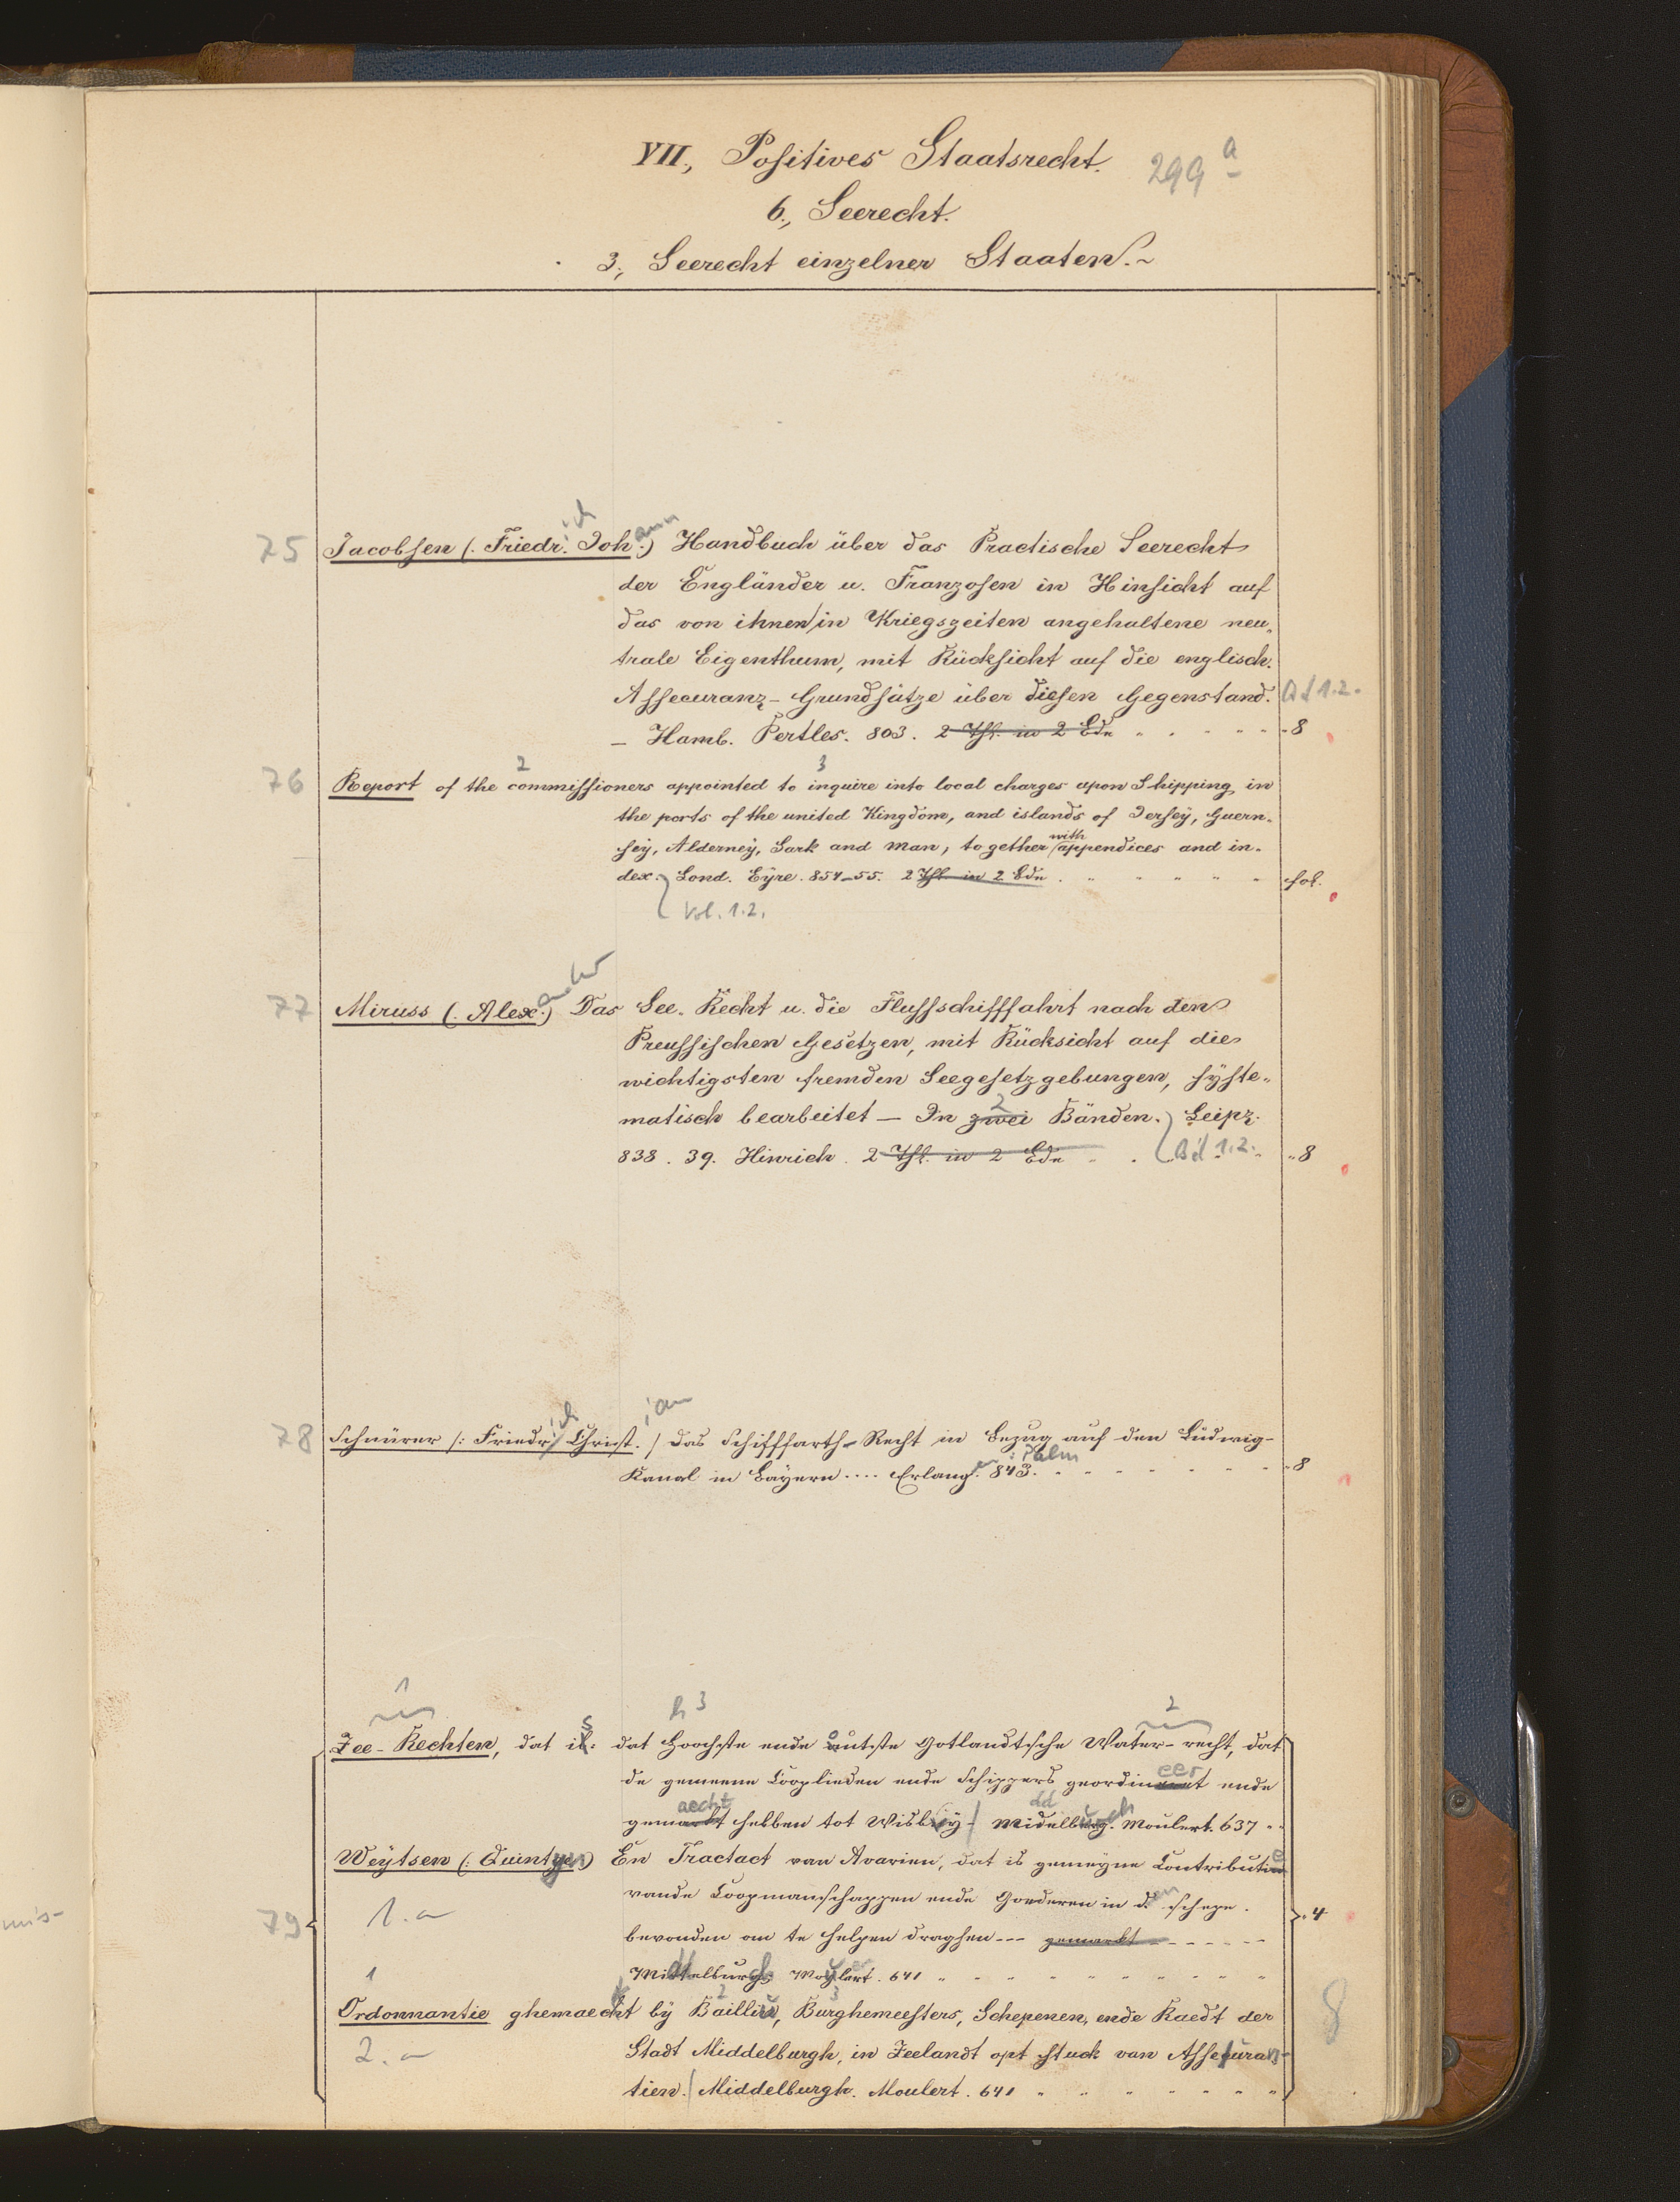 VII., Positives Staatsrecht. 299 a
6., Seerecht.
3., Seerecht einzelner Staaten.
75 Jacobsen (. Friedr.ich Joh.ann) Handbuch über das Practische Seerecht
der Engländer u. Franzosen in Hinsicht auf
das von ihnen/in Kriegszeiten angehaltene neu-
trale Eigenthum, mit Rücksicht auf die englisch.
Assecuranz-Grundsätze über diesen Gegenstand. Bd 1.2.
— Hamb. Pertles. 803. 2 Thl. in 2 Bdn " 8
76 Report of the commissioners appointed to inquire into local charges upon Shipping in
the ports of the united Kingdom, and islands of Jersey, Guern-
sey, Alderney, Sark and Man, together with appendices and in-
dex. Lond. Eyre. 854-55. 2 Thl. in 2 Bdn. fol.
Vol. 1.2.
77 Miruss (. Alex.ander) Das See-Recht u. die Flussschifffahrt nach den
Preussischen Gesetzen, mit Rücksicht auf die
wichtigsten fremden Seegesetzgebungen, syste-
matisch bearbeitet — In zwei 2 Bänden. Leipz.
838. 39. Hinrich. 2 Thl. in 2 Bdn Bd 1.2. 8
78 Schnürer /: Friedr.ich Christ.ian / Das Schifffarth-Recht in Bezug auf den Ludwig-
Kanal in Bayern .... Erlang.en: Palm 843. 8
Zee-Rechten, dat is: dat Hoochste ende outste Gotlandtsche Water-recht, dat
de gemeene Cooplieden ende Schippers geordineert ende
gemaeckt hebben tot Wisby - Middelburch. Moulert. 637
Weytsen (: Quintyn) En Tractact van Avarien, dat is gemeyne Contributie
vande Coopmanschappen ende Goederen in den schepe.
79 1.a 4
bevonden om te helpen draghen --- gemarkt
Middelburch Moulert. 641
Ordonnantie ghemaeckt by Bailliu, Burghemeesters, Schepenen, ende Raedt der
2.a Stadt Middelburgh, in Zeelandt opt stuck van Assecuran-
tien./ Middelburgh. Moulert. 641
8